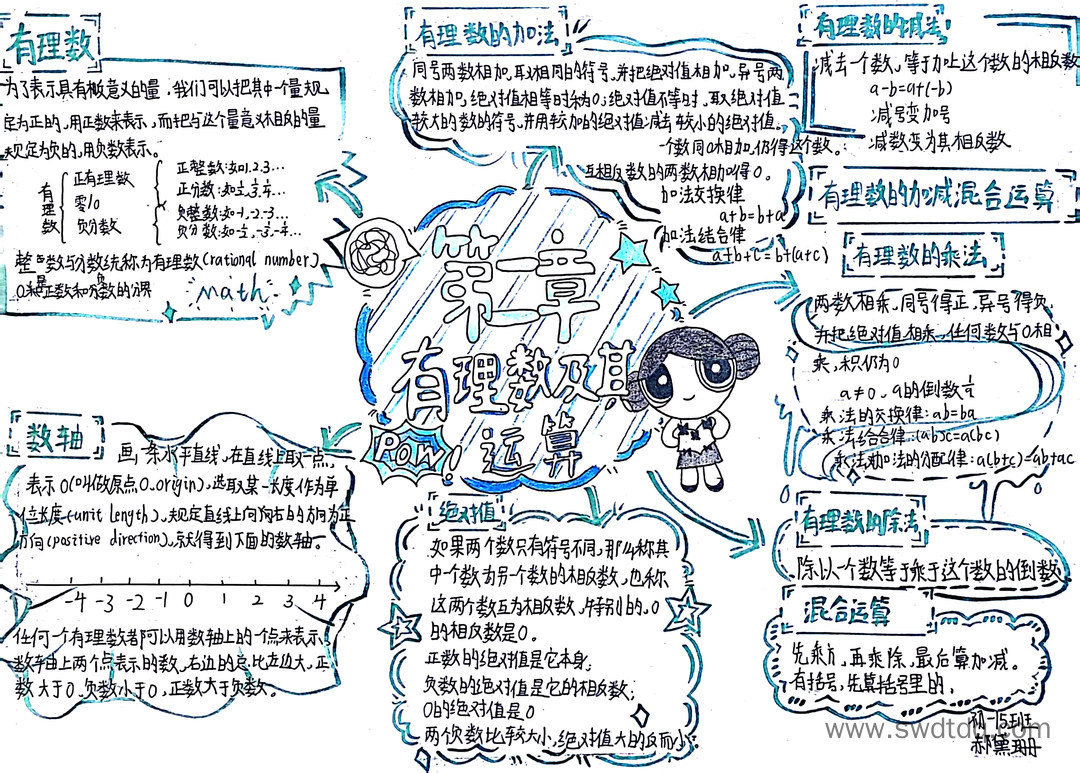 有理数
为了表示具有相反意义的量，我们可以把其中一个量规
定为正的，用正数来表示，而把与这个量意义相反的量
规定为负的，用负数表示。
有理数
正有理数
零/0
负分数
正整数:如1,2,3…
正分数:如
负整数:如-1,-2,-3…
负分数:如
整数与分数统称为有理数(rational number)
0和正数和
math
有理数的加法
同号两数相加,取相同的符号,并把绝对值相加,异号两
数相加,绝对值相等时和为0;绝对值不等时,取绝对值
较大的数的符号,并用较大的绝对值减去较小的绝对值.
一个数同0相加,仍得这个数。
互相反数的两数相加得0。
加法交换律
a+b=b+a
加法结合律
a+b+c=b+(a+c)
有理数的减法
减去一个数,等于加上这个数的相反数
a-b=a+(-b)
减号变加号
减数变为其相反数
有理数的加减混合运算
有理数的乘法
两数相乘,同号得正,异号得负,
并把绝对值相乘,任何数与0相
乘,积仍为0
a≠0,a的倒数
乘法的交换律:ab=ba
乘法结合律:(ab)c=a(bc)
乘法对加法的分配律:a(b+c)=ab+ac
第二章
有理数及其
运算
POW!
数轴
画一条水平直线,在直线上取一点,
表示0(叫做原点0.origin),选取某一长度作为单
位长度(unit length),规定直线上向右的方向为正
方向(positive direction),就得到下面的数轴。
-4 -3 -2 -1 0 1 2 3 4
任何一个有理数都可以用数轴上的一个点来表示
数轴上两个点表示的数,右边的总比左边大,正
数大于0,负数小于0,正数大于负数。
绝对值
如果两个数只有符号不同,那么称其
中一个数为另一个数的相反数,也称
这两个数互为相反数,特别的,0
的相反数是0。
正数的绝对值是它本身;
负数的绝对值是它的相反数;
0的绝对值是0
两个负数比较大小,绝对值大的反而小
有理数的除法
除以一个数等于乘于这个数的倒数
混合运算
先乘方,再乘除,最后算加减。
有括号,先算括号里的,
初一15班
郝黛珊
www.swdtdq.com